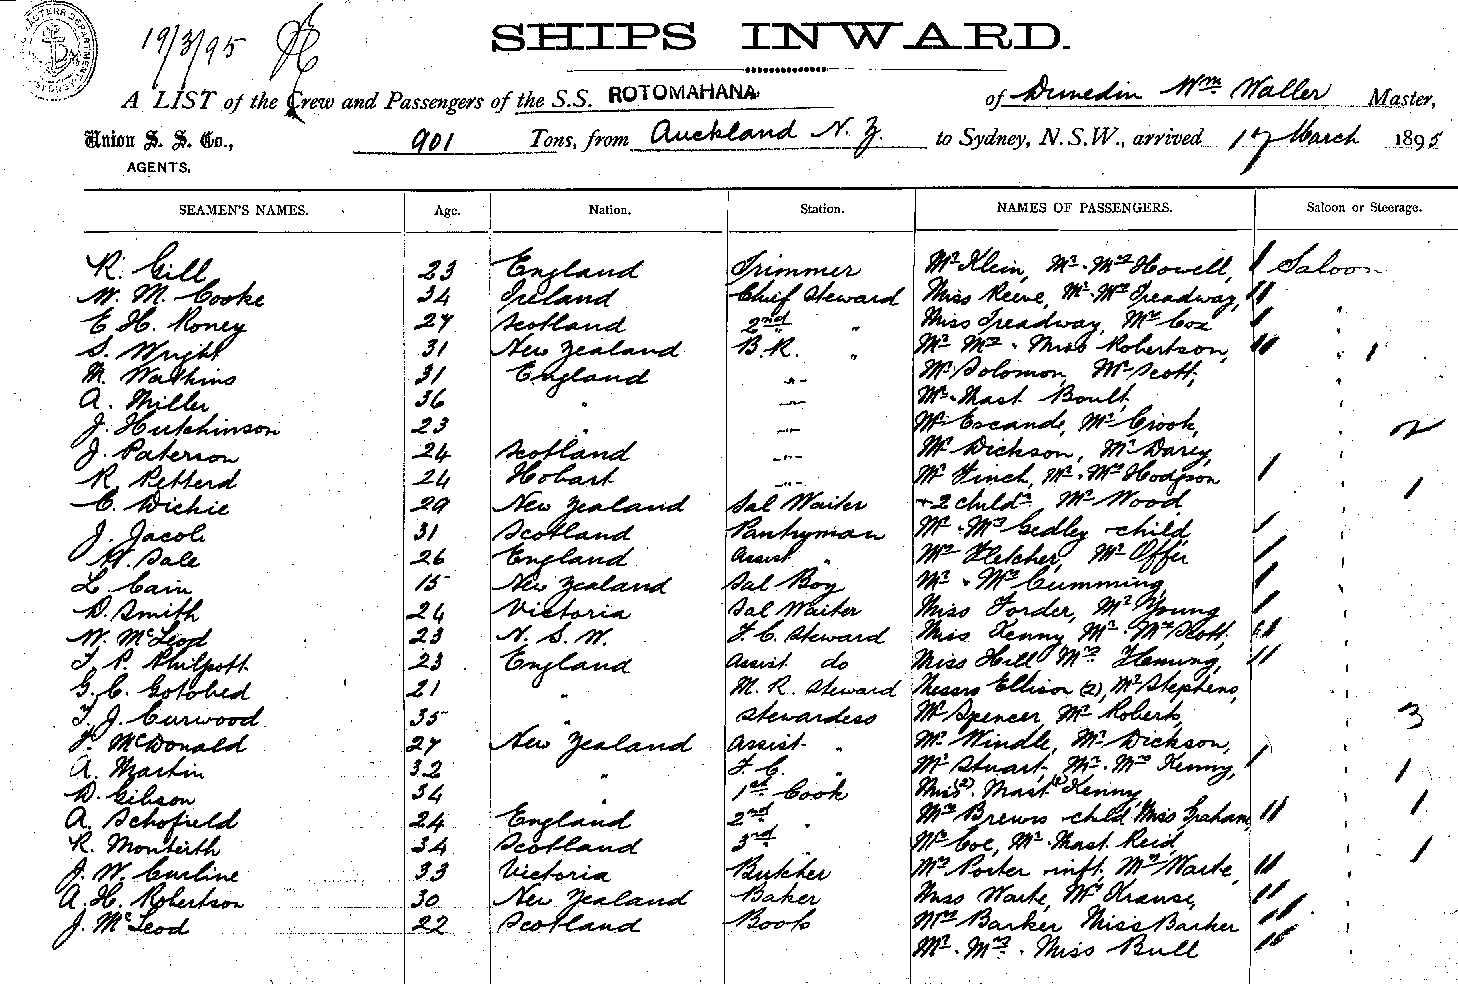 19/3/95
SHIPS INWARD.
A LIST of the Crew and Passengers of the S.S. ROTOMAHANA of Dunedin Wm Waller Master,
Union S. S. Co., 901 Tons, from Auckland N. Z. to Sydney, N.S.W., arrived 17 March 1895
AGENTS.
SEAMEN'S NAMES. Age. Nation. Station. NAMES OF PASSENGERS. Saloon or Steerage.
R. Gill 23 England Trimmer Mr Klein, Mr. Mrs Howell, 1 Saloon
W. M. Cooke 34 Ireland Chief Steward Miss Reeve, Mr. Mrs Treadway, 11 "
E. H. Roney 27 Scotland 2nd " Miss Treadway, Mr Cox 1 "
S. Wright 31 New Zealand B.R. " Mr Mrs. Miss Robertson, 11 " 1
M. Watkins 31 England -"- Mr Solomon, Mr Scott, "
A. Miller 36 " -"- Mr. Mast Boult, "
J. Hutchinson 23 " -"- Mr Escande, Mr Crook, " 2
J. Paterson 24 Scotland -"- Mr Dickson, Mr Darcy, "
R. Petterd 24 Hobart -"- Mr Finch, Mr. Mrs Hodgson 1 "
C. Dichie 29 New Zealand Sal Waiter + 2 childn Mr Wood 1
J. Jacob 31 Scotland Pantryman Mr. Mrs Gedley child 1 "
H. Sale 26 England Assist " Mrs Fletcher, Mr Offer 1 "
L. Cain 15 New Zealand Sal Boy Mr. Mrs Cumming, 1 "
D. Smith 24 Victoria Sal Waiter Miss Forder, Mr Young 1 "
W. McLeod 23 N. S. W. F. C. Steward Miss Kenny Mr. Mrs Scott, 11 "
T. P. Philpott 23 England Assist do Miss Hill Mrs Fleming, 11 "
G. C. Gotobed 21 " M. R. Steward Messrs Ellison (2), Mr Stephens, "
T. J. Curwood 35 " Stewardess Mr Spencer, Mr Roberts, " 3
F. McDonald 27 New Zealand Assist " Mr Windle, Mr Dickson, "
A. Martin 32 " F. C. " Mr Stuart, Mr. Mrs Kenny, 1 " 1
D. Gibson 34 " 1st Cook Miss (2). Mast (2) Kenny " 1
A. Schofield 24 England 2nd " Mrs Brewis child Miss Graham, 11 "
R. Monteith 34 Scotland 3rd " Mr Coe, Mr. Mast Reid, " 1
J. W. Curline 33 Victoria Butcher Mrs Porter inft, Mrs Warte, 11 "
A. H. Robertson 30 New Zealand Baker Miss Warte, Mr Krause, 11 "
J. McLeod 22 Scotland Book Mrs Barker Miss Barker 11 "
Mr. Mrs. Miss Bull 11 "